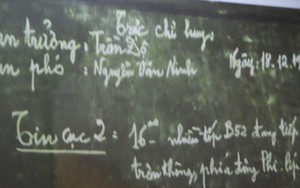 Trực chỉ huy
an trưởng : Trần
an phó : Nguyễn Văn Ninh Ngày: 18.12.19
Tin cục 2 : 16 00 nhiều tốp B52 đang tiếp
trên không, phía đông Phi-líp